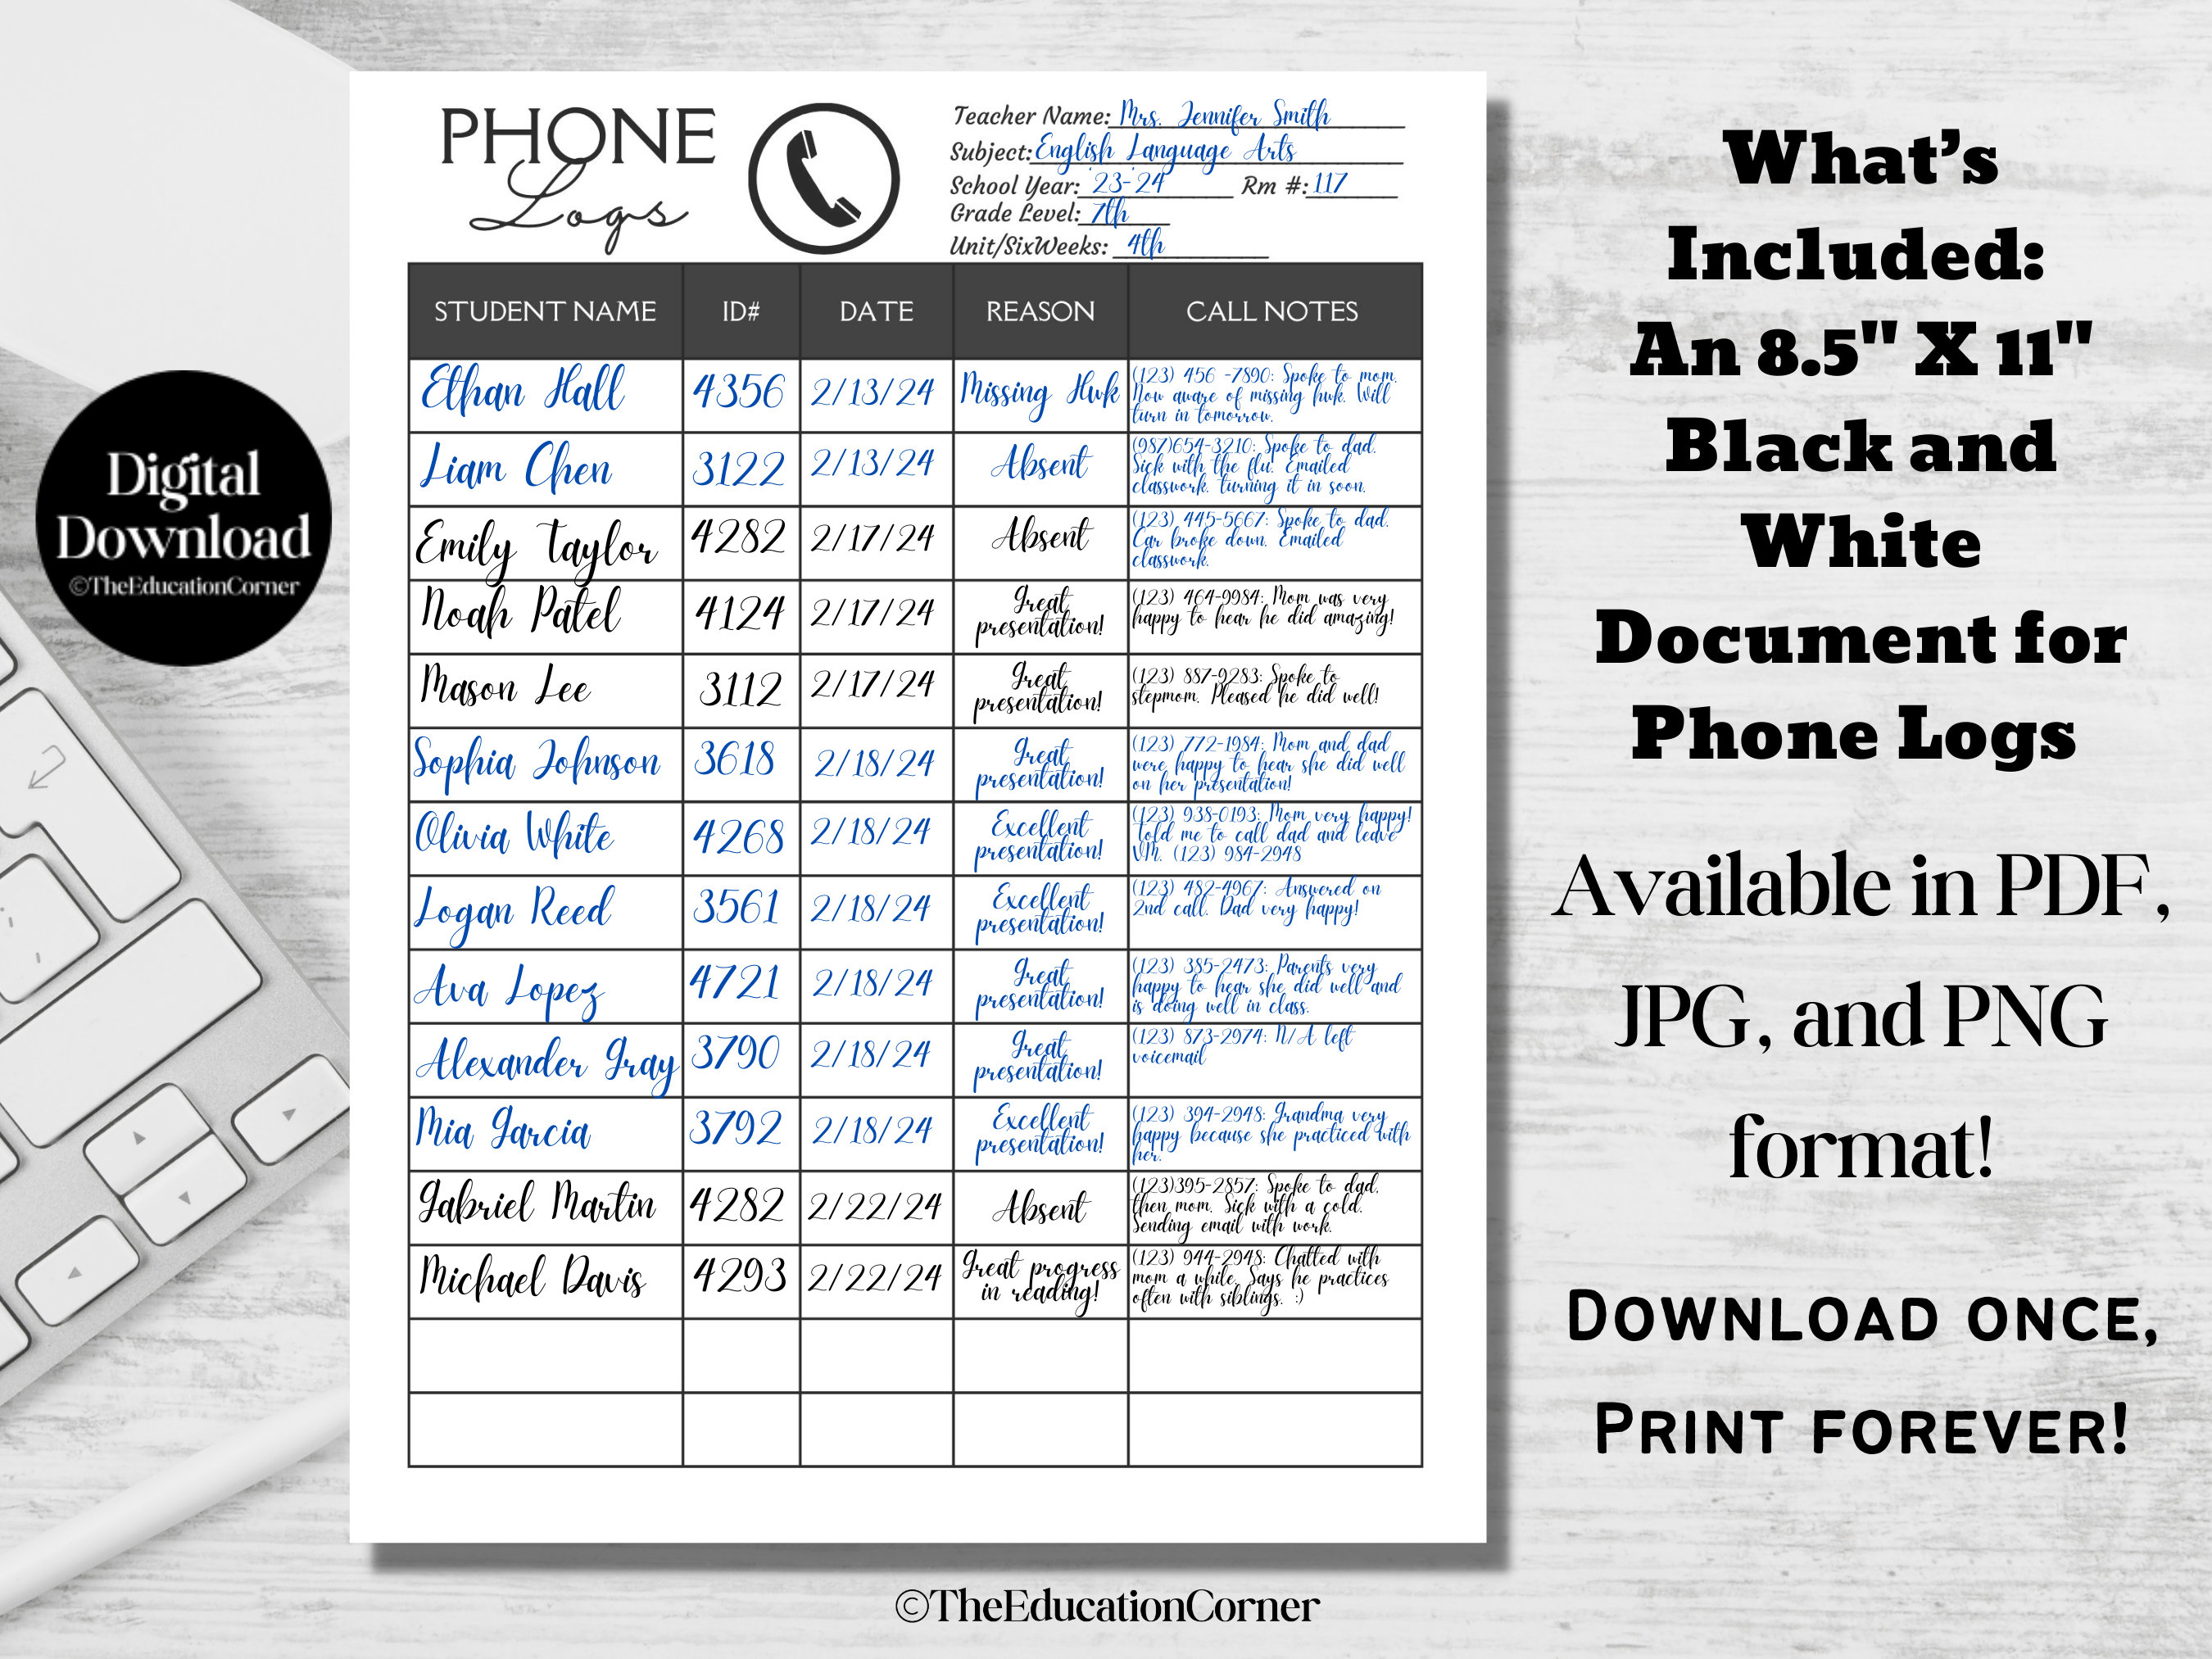 PHONE
Logs
Teacher Name: Mrs. Jennifer Smith
Subject: English Language Arts
School Year: '23-'24 Rm #: 117
Grade Level: 7th
Unit/SixWeeks: 4th
STUDENT NAME ID# DATE REASON CALL NOTES
Ethan Hall 4356 2/13/24 Missing Hwk (123) 456 -7890: Spoke to mom.
Now aware of missing hwk. Will
turn in tomorrow.
Liam Chen 3122 2/13/24 Absent (987)654-3210: Spoke to dad.
Sick with the flu. Emailed
classwork. turning it in soon.
Emily Taylor 4282 2/17/24 Absent (123) 445-5667: Spoke to dad.
Car broke down. Emailed
classwork.
Noah Patel 4124 2/17/24 Great
presentation!
(123) 464-9984: Mom was very
happy to hear he did amazing!
Mason Lee 3112 2/17/24 Great
presentation!
(123) 887-9283: Spoke to
stepmom. Pleased he did well!
Sophia Johnson 3618 2/18/24 Great
presentation!
(123) 772-1984: Mom and dad
were happy to hear she did well
on her presentation!
Olivia White 4268 2/18/24 Excellent
presentation!
(123) 938-0193: Mom very happy!
Told me to call dad and leave
VM. (123) 984-2948
Logan Reed 3561 2/18/24 Excellent
presentation!
(123) 482-4967: Answered on
2nd call. Dad very happy!
Ava Lopez 4721 2/18/24 Great
presentation!
(123) 385-2473: Parents very
happy to hear she did well and
is doing well in class.
Alexander Gray 3790 2/18/24 Great
presentation!
(123) 873-2974: N/A left
voicemail
Mia Garcia 3792 2/18/24 Excellent
presentation!
(123) 394-2948: Grandma very
happy because she practiced with
her.
Gabriel Martin 4282 2/22/24 Absent (123)395-2857: Spoke to dad,
then mom. Sick with a cold.
Sending email with work.
Michael Davis 4293 2/22/24 Great progress
in reading!
(123) 944-2948: Chatted with
mom a while. Says he practices
often with siblings. :)
Digital
Download
©TheEducationCorner
What's
Included:
An 8.5" X 11"
Black and
White
Document for
Phone Logs
Available in PDF,
JPG, and PNG
format!
Download once,
Print forever!
©TheEducationCorner